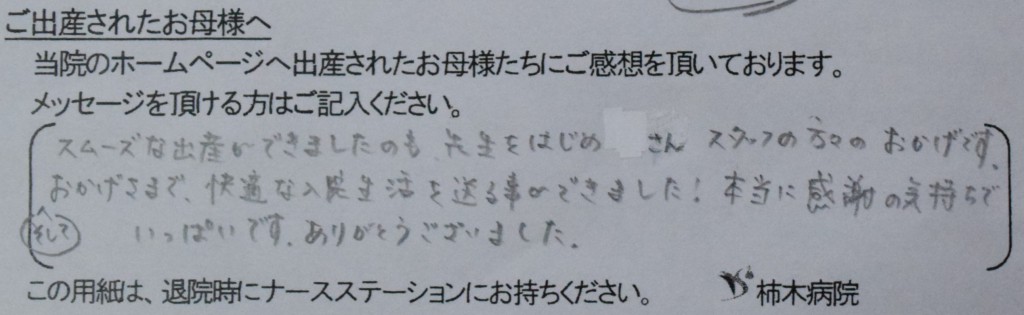 ご出産されたお母様へ
当院のホームページへ出産されたお母様たちにご感想を頂いております。
メッセージを頂ける方はご記入ください。
スムーズな出産ができましたのも、先生をはじめ さん スタッフの方々の おかげです。
おかげさまで、快適な入院生活を送る事ができました! 本当に感謝の気持ちで
そして いっぱいです。ありがとうございました。
この用紙は、退院時にナースステーションにお持ちください。 柿木病院